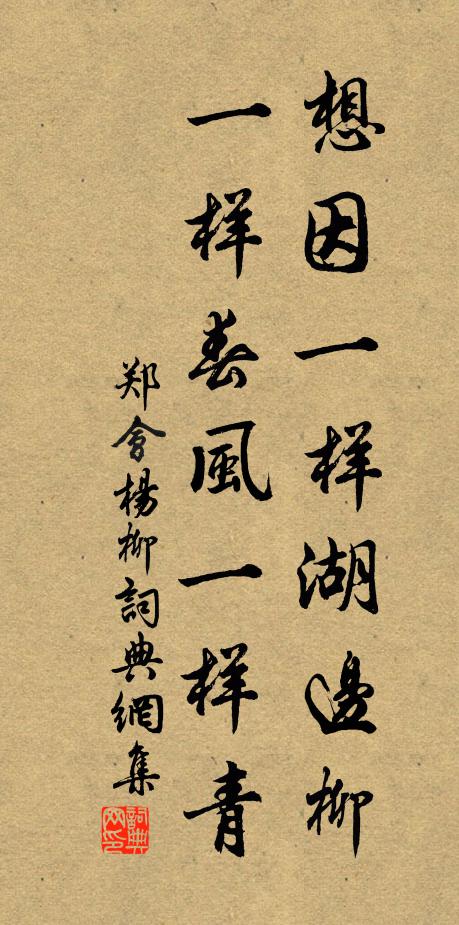 想因一样湖邊柳
一样春風一样青
郑會楊柳詞典網集
詞典网印